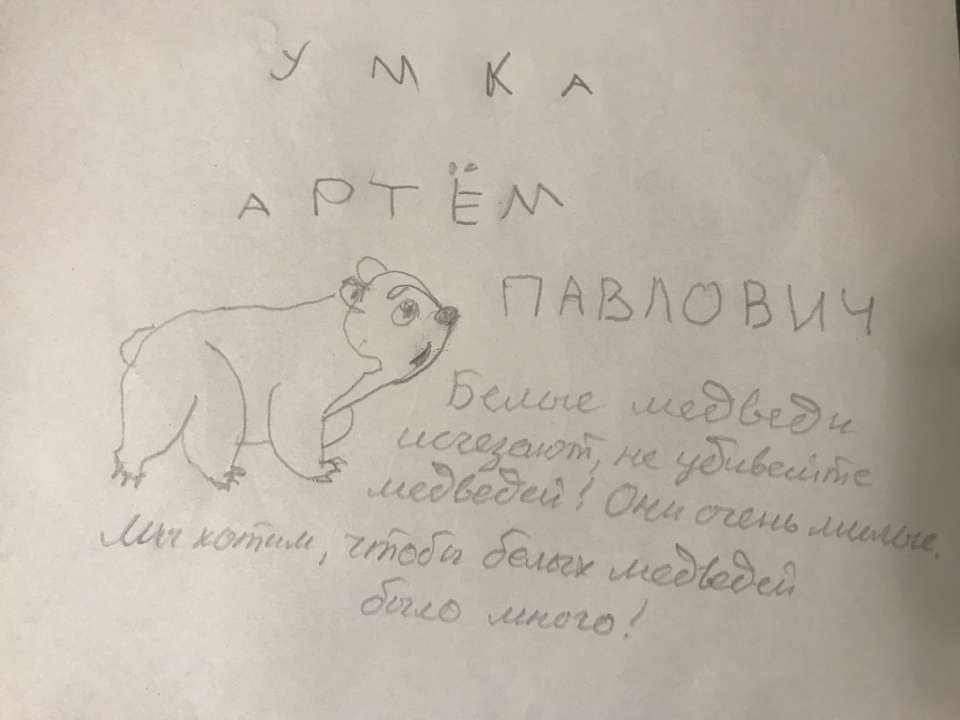 УМКА
АРТЁМ
ПАВЛОВИЧ
Белые медведи
исчезают, не убивейте
медведей! Они очень милые.
Мы хотим, чтобы белых медведей
было много!